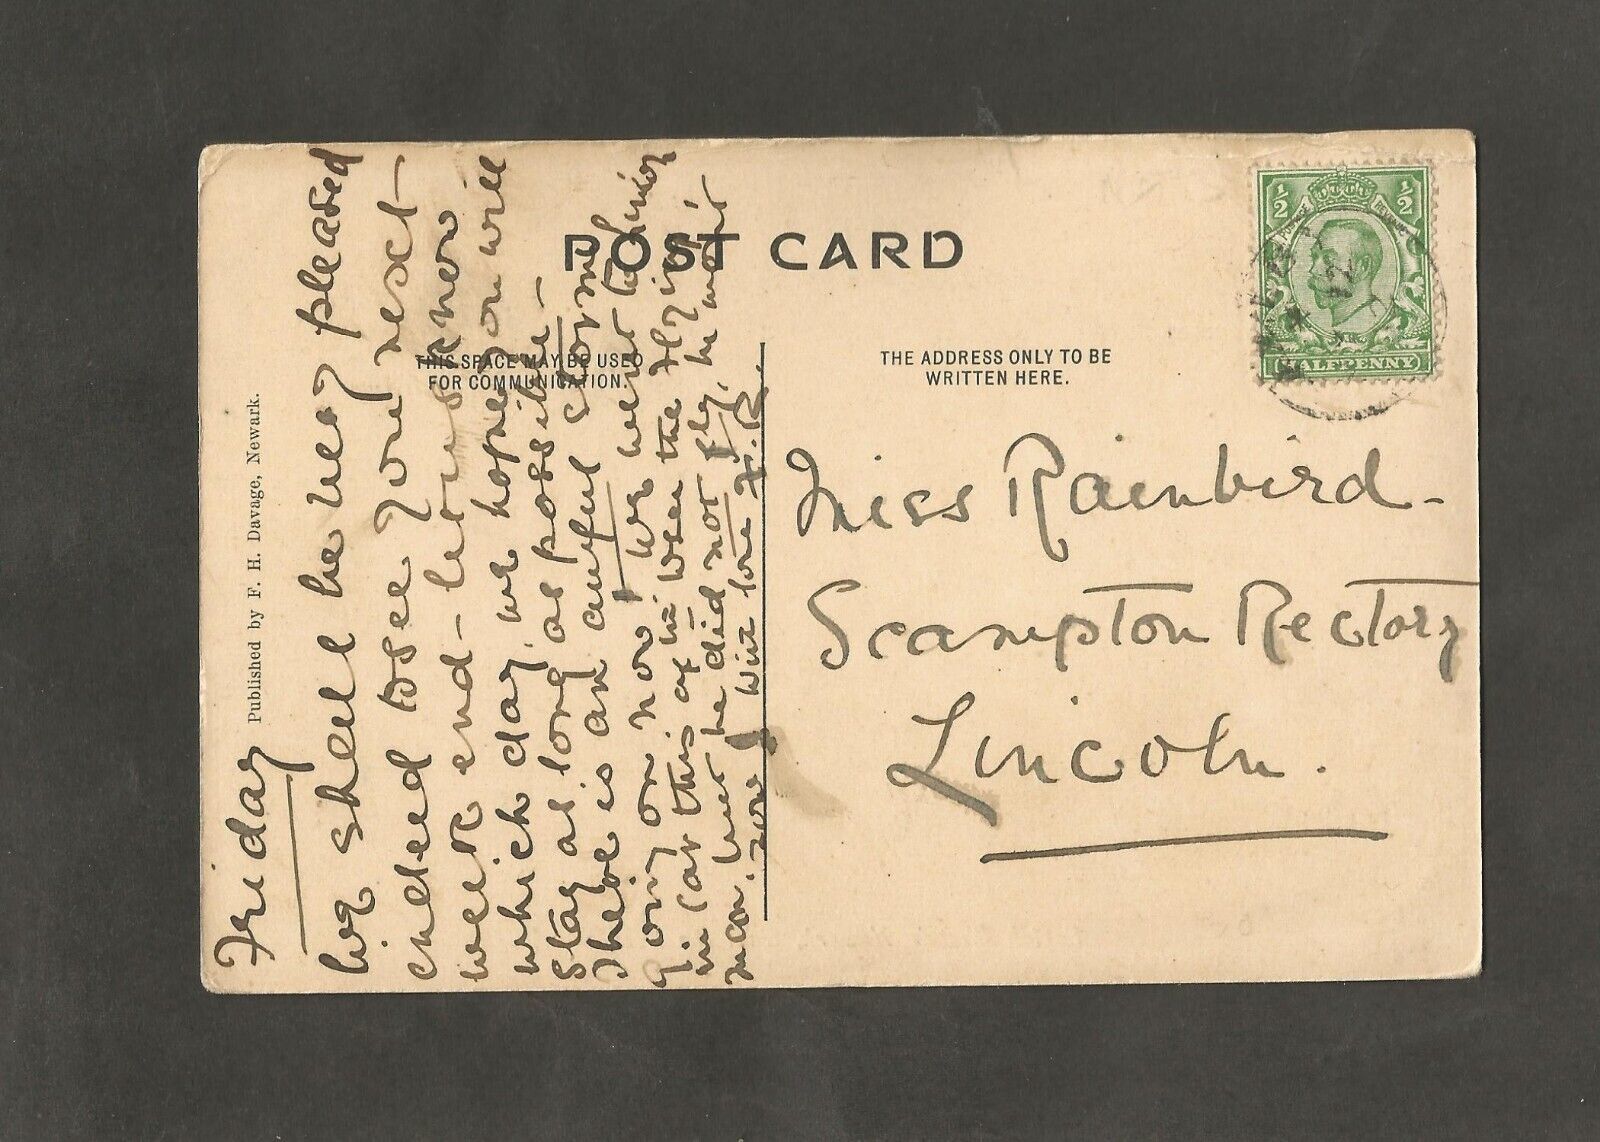 POST CARD
THIS SPACE MAY BE USED
FOR COMMUNICATION.
THE ADDRESS ONLY TO BE
WRITTEN HERE.
Published by F. H. Davage, Newark.
½ ½
POSTAGE REVENUE
HALFPENNY
12
Friday
We shall be very pleased
indeed to see you next
week end - let us know
which day, we hope you will
stay as long as possible -
There is an awful storm
going on now! We went to
in car this aft: to see the flying
man, but he did not fly, he
love
Miss Rainbird -
Scampton Rectory
Lincoln.